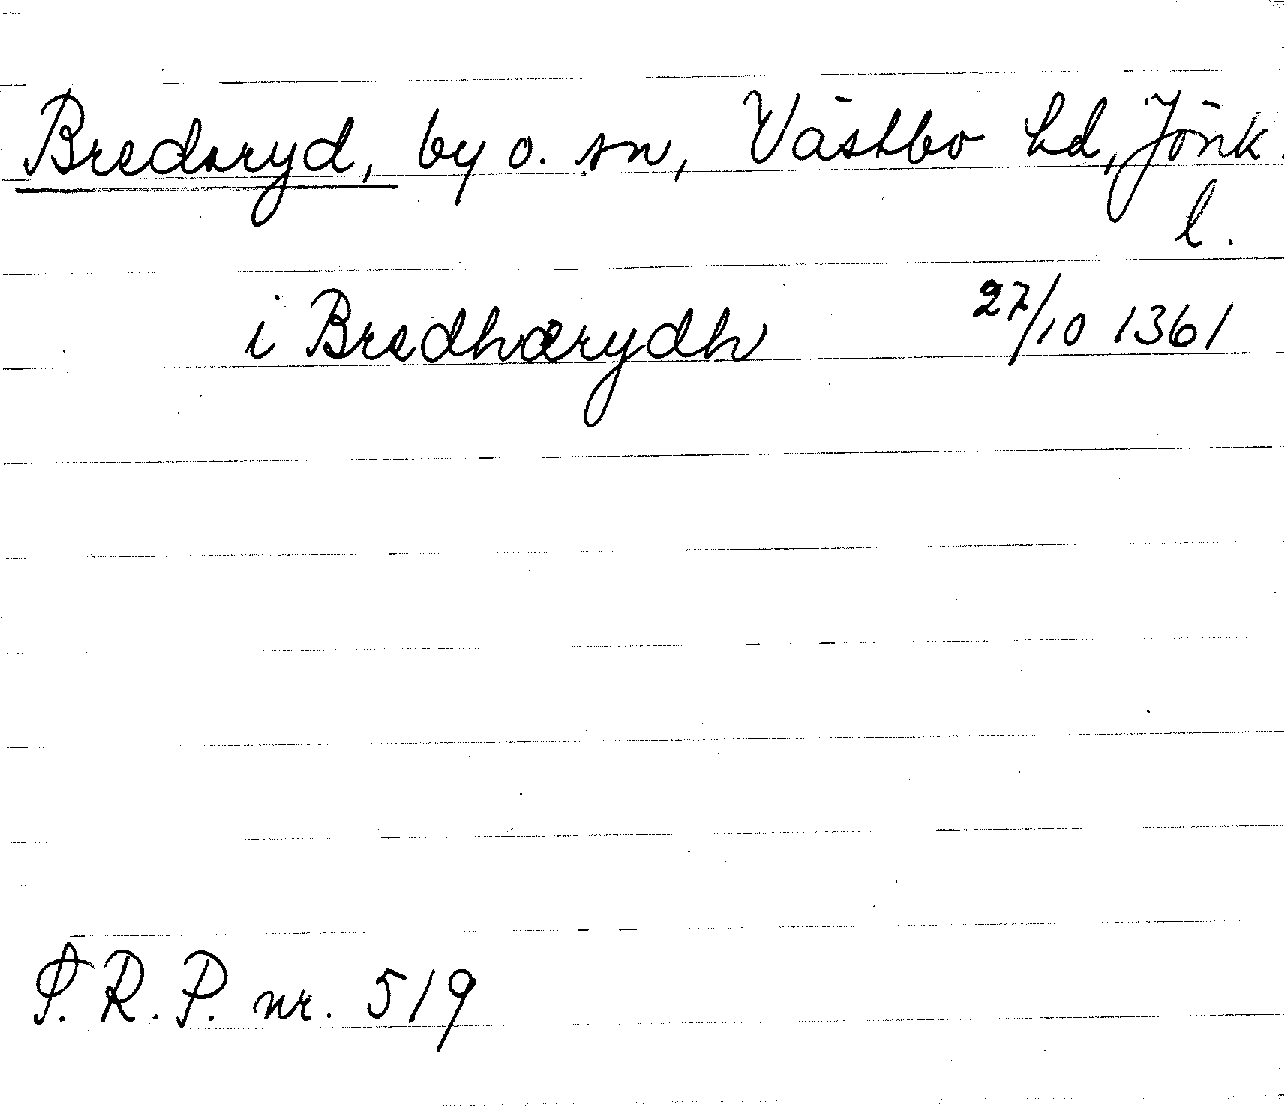 Bredaryd, by o. sn, Västbo hd, Jönk.
l.
i Bredhærydh 27/10 1361
P.R.P. nr. 519